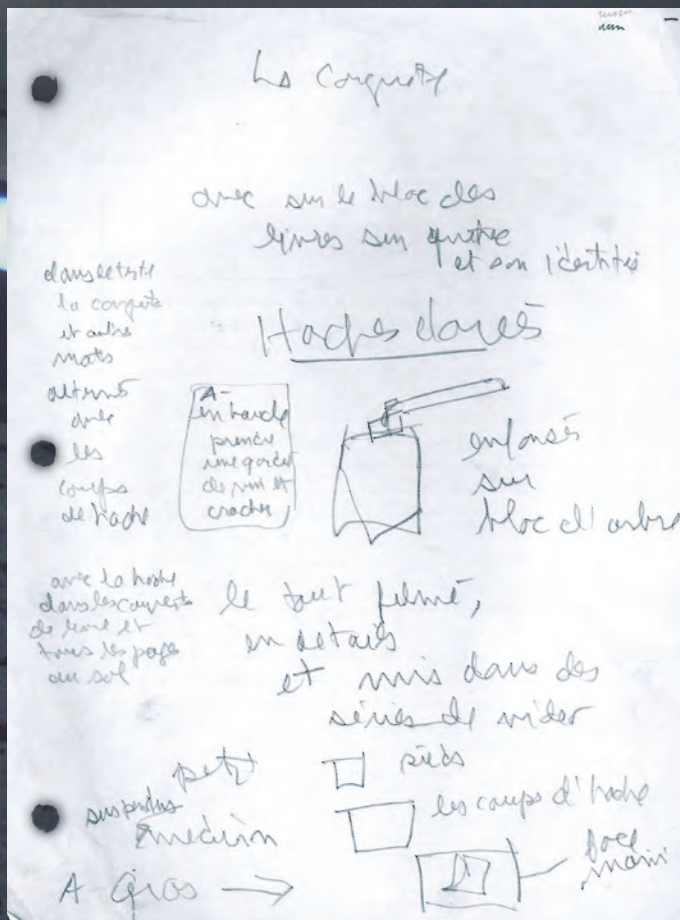 La conquête
avec sur le bloc des
livres sur
et son identités
dans le texte
la conquête
et autre
mots
alterné
avec
les
coups
de hache
Haches dorés
A-
en
prendre
une gorgée
de et
cracher
enfonsés
sur
bloc d'arbre
avec la hache
dans les
de livre et
tous les pages
au sol
le tout filmé,
en détails
et mis dans des
séries de
petit
pieds
suspendus
medium
les coups d'hache
A Gros →
face
main